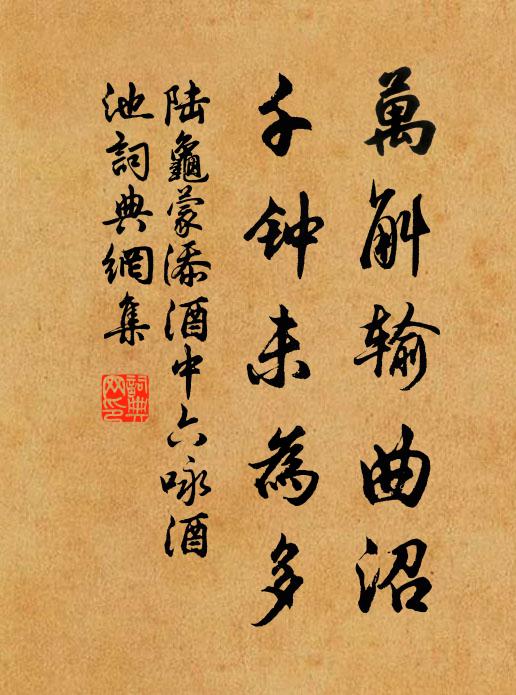 萬斛输曲沼
千钟未為多
陆龜蒙添酒中六咏酒
池詞典網集
詞典
网印